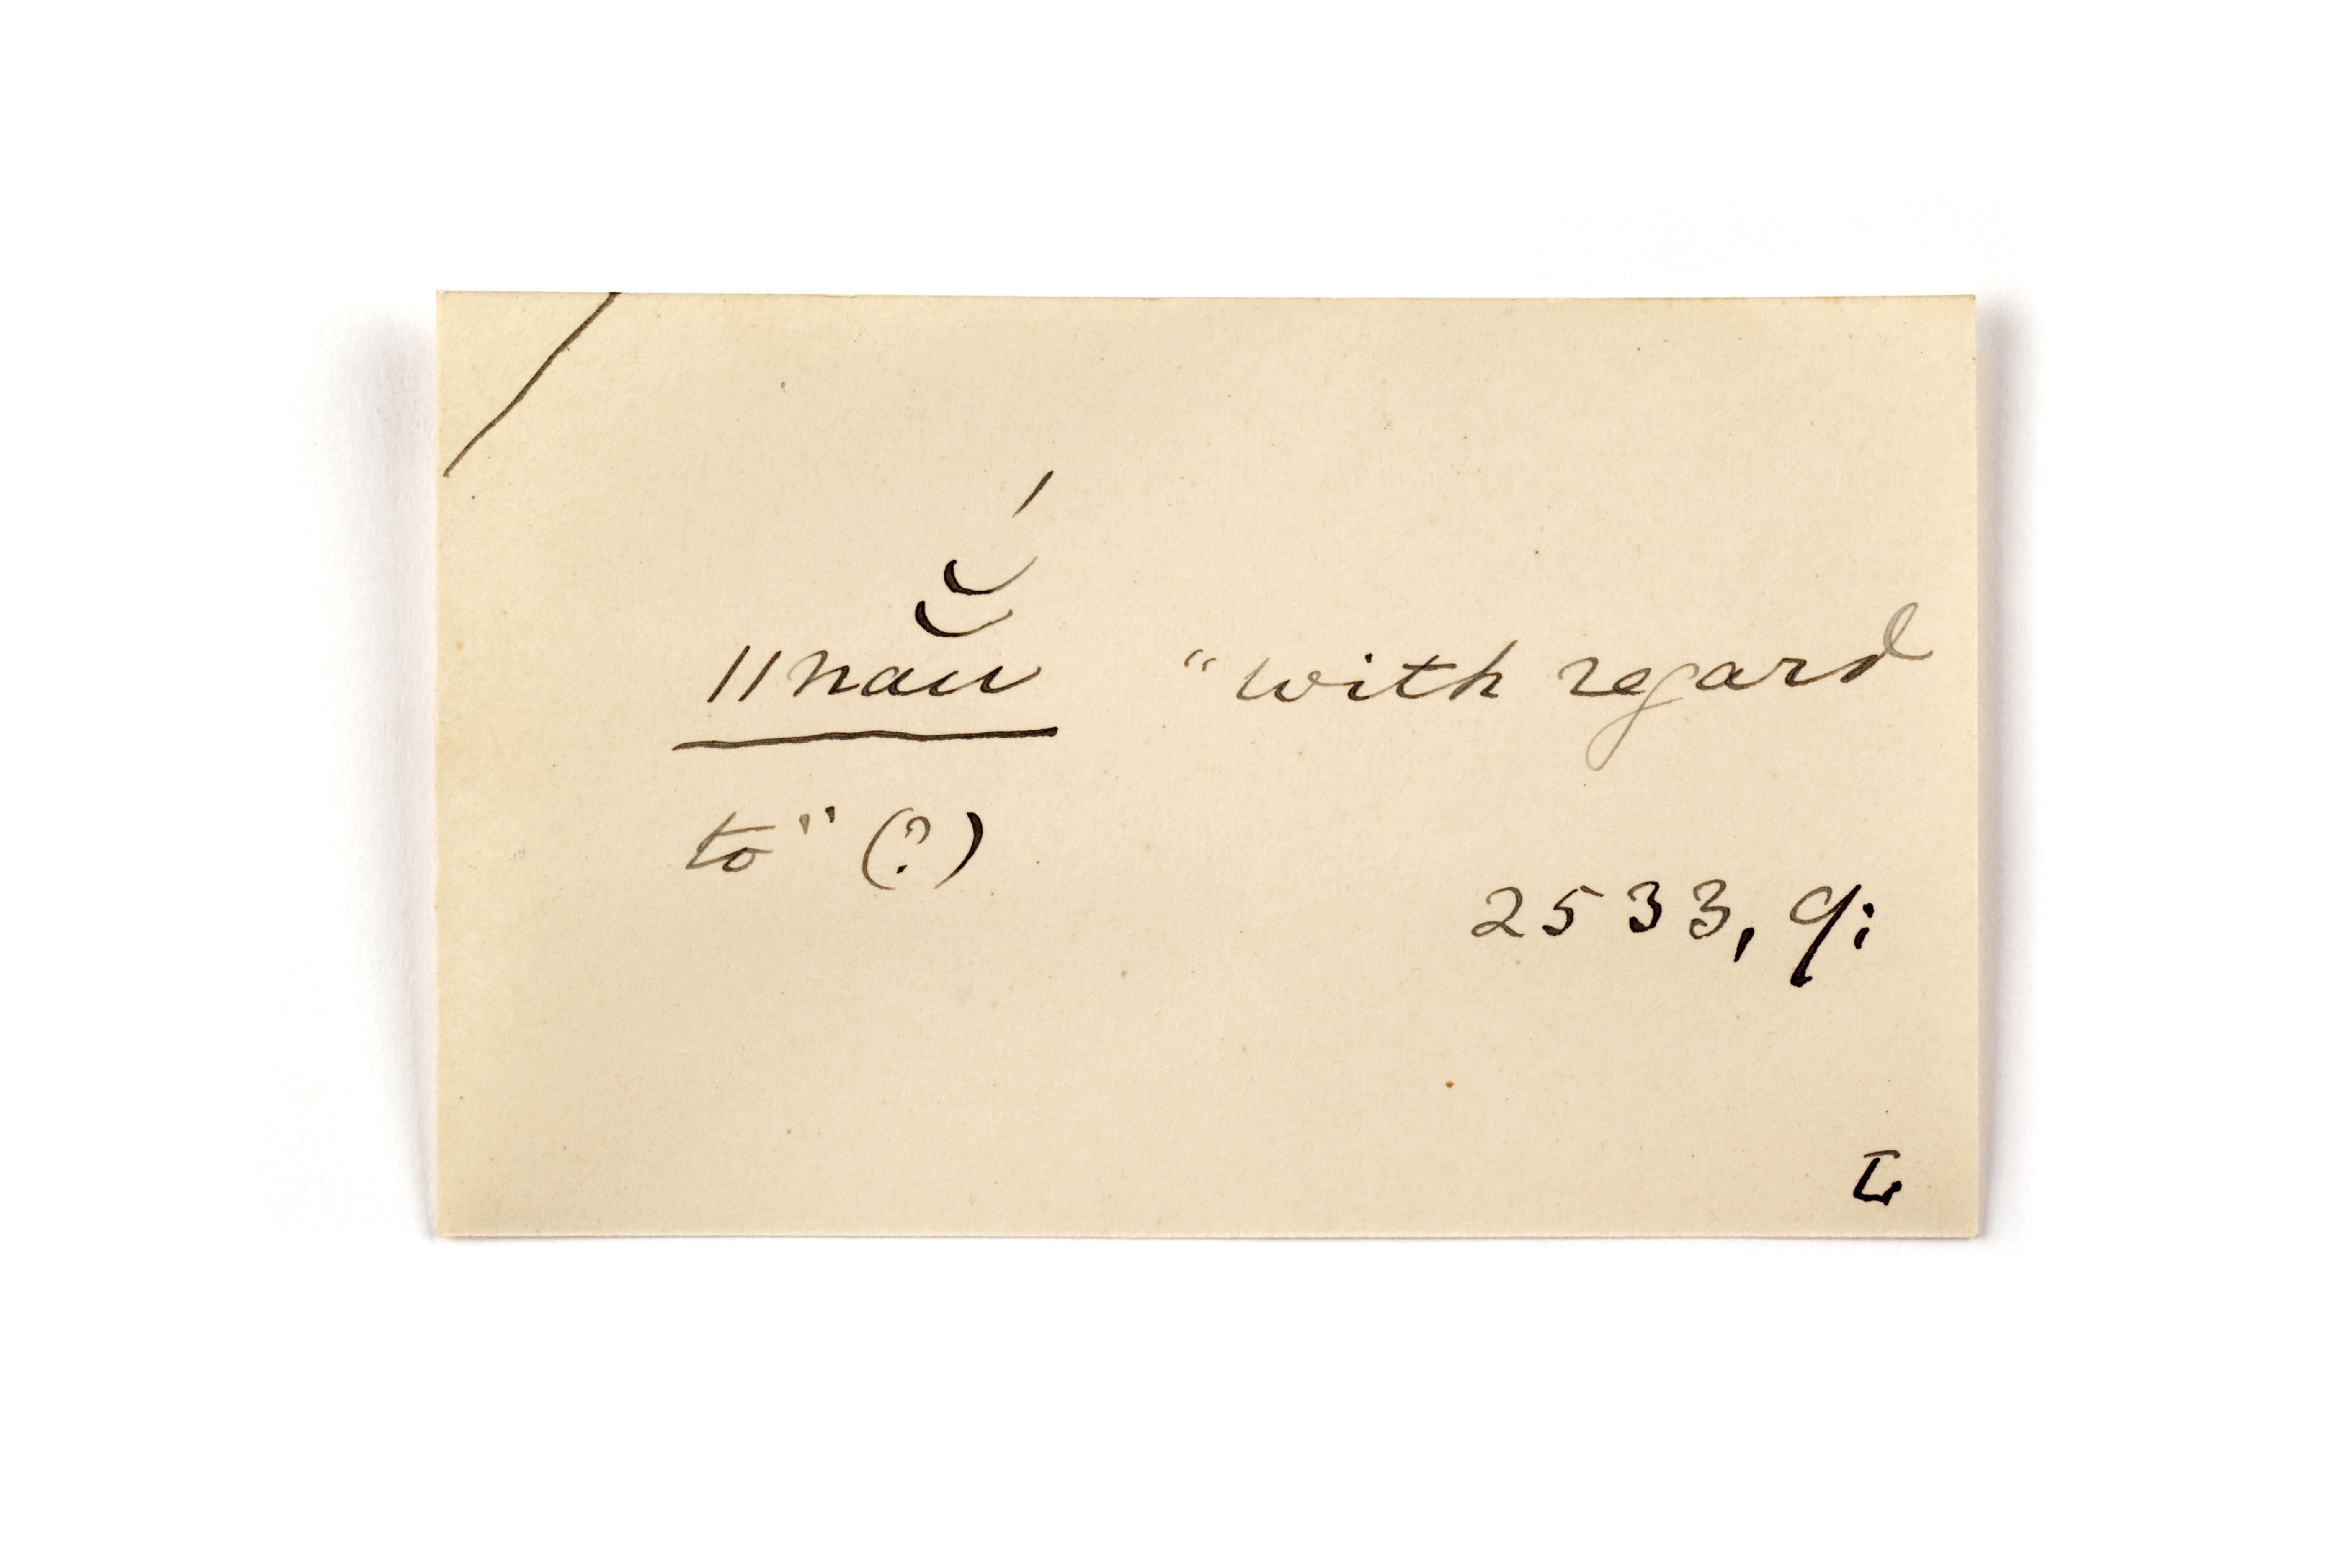 ǁnaŭ̆́ "with regard
to" (?)
2533, 9:
L